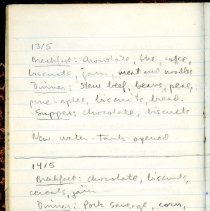 13/5
Breakfast: chocolate, coffee,
biscuits, jam, meat and noodles
Dinner: Stew beef, beans, peas,
pineapples, biscuits, bread.
Supper: chocolate, biscuits
New water-tank opened
14/5
Breakfast: chocolate, biscuits,
cereals, jam
Dinner: Pork sausage, corn,